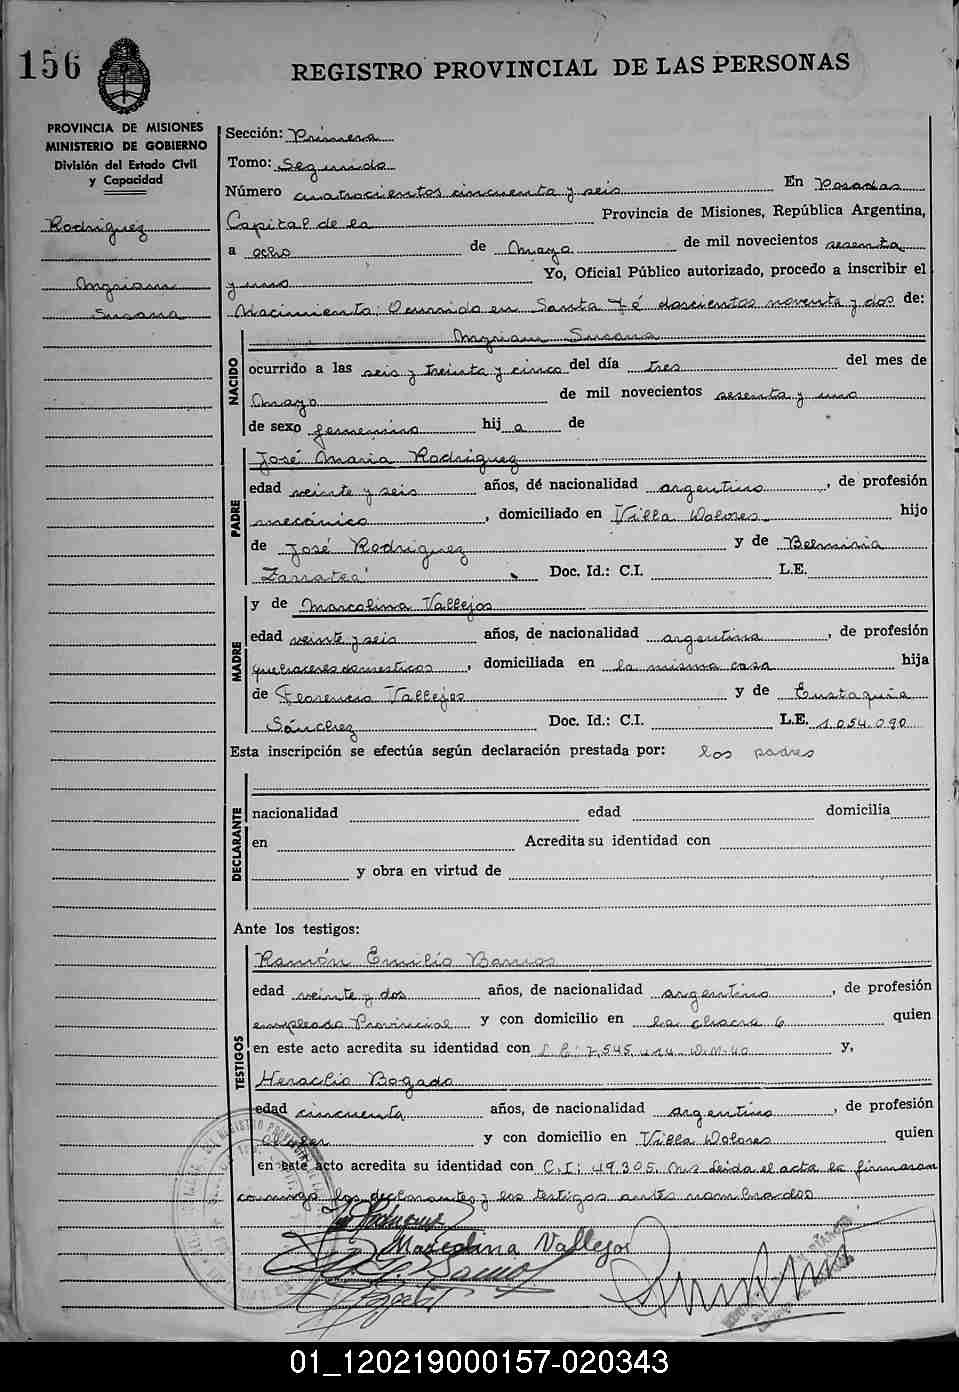 156
REGISTRO PROVINCIAL DE LAS PERSONAS
PROVINCIA DE MISIONES
MINISTERIO DE GOBIERNO
División del Estado Civil
y Capacidad
Rodriguez
Myriam
Susana
Sección: Primera
Tomo: Segundo
Número cuatrocientos cincuenta y seis En Posadas
Capital de la Provincia de Misiones, República Argentina,
a ocho de Mayo de mil novecientos sesenta
y uno Yo, Oficial Público autorizado, procedo a inscribir el
Nacimiento: Ocurrido en Santa Fé doscientos noventa y dos de:
Myriam Susana
NACIDO
ocurrido a las seis y treinta y cinco del día tres del mes de
Mayo de mil novecientos sesenta y uno
de sexo femenino hij a de
José Maria Rodriguez
PADRE
edad veinte y seis años, dé nacionalidad argentino, de profesión
mecánico, domiciliado en Villa Dolores hijo
de José Rodriguez y de Belmiria
Zarratea Doc. Id.: C.I. L.E.
y de Marcolina Vallejos
MADRE
edad veinte y seis años, de nacionalidad argentina, de profesión
quehaceres domesticos, domiciliada en la misma casa hija
de Florencio Vallejos y de Eustaquia
Sánchez Doc. Id.: C.I. L.E. 1.054.090
Esta inscripción se efectúa según declaración prestada por: los padres
DECLARANTE
nacionalidad edad domicilia
en Acredita su identidad con
y obra en virtud de
Ante los testigos:
Ramón Emilio Barrios
TESTIGOS
edad veinte y dos años, de nacionalidad argentino, de profesión
empleado Provincial y con domicilio en la chacra 6 quien
en este acto acredita su identidad con L.E: 7.545.414 D.M. 40 y,
Heraclio Bogado
edad cincuenta años, de nacionalidad argentino, de profesión
chofer y con domicilio en Villa Dolores quien
en este acto acredita su identidad con C.I: 49.305 Mis leida el acta la firmaron
conmigo los declarantes y los testigos antes nombrados
Marcolina Vallejos
01_120219000157-020343